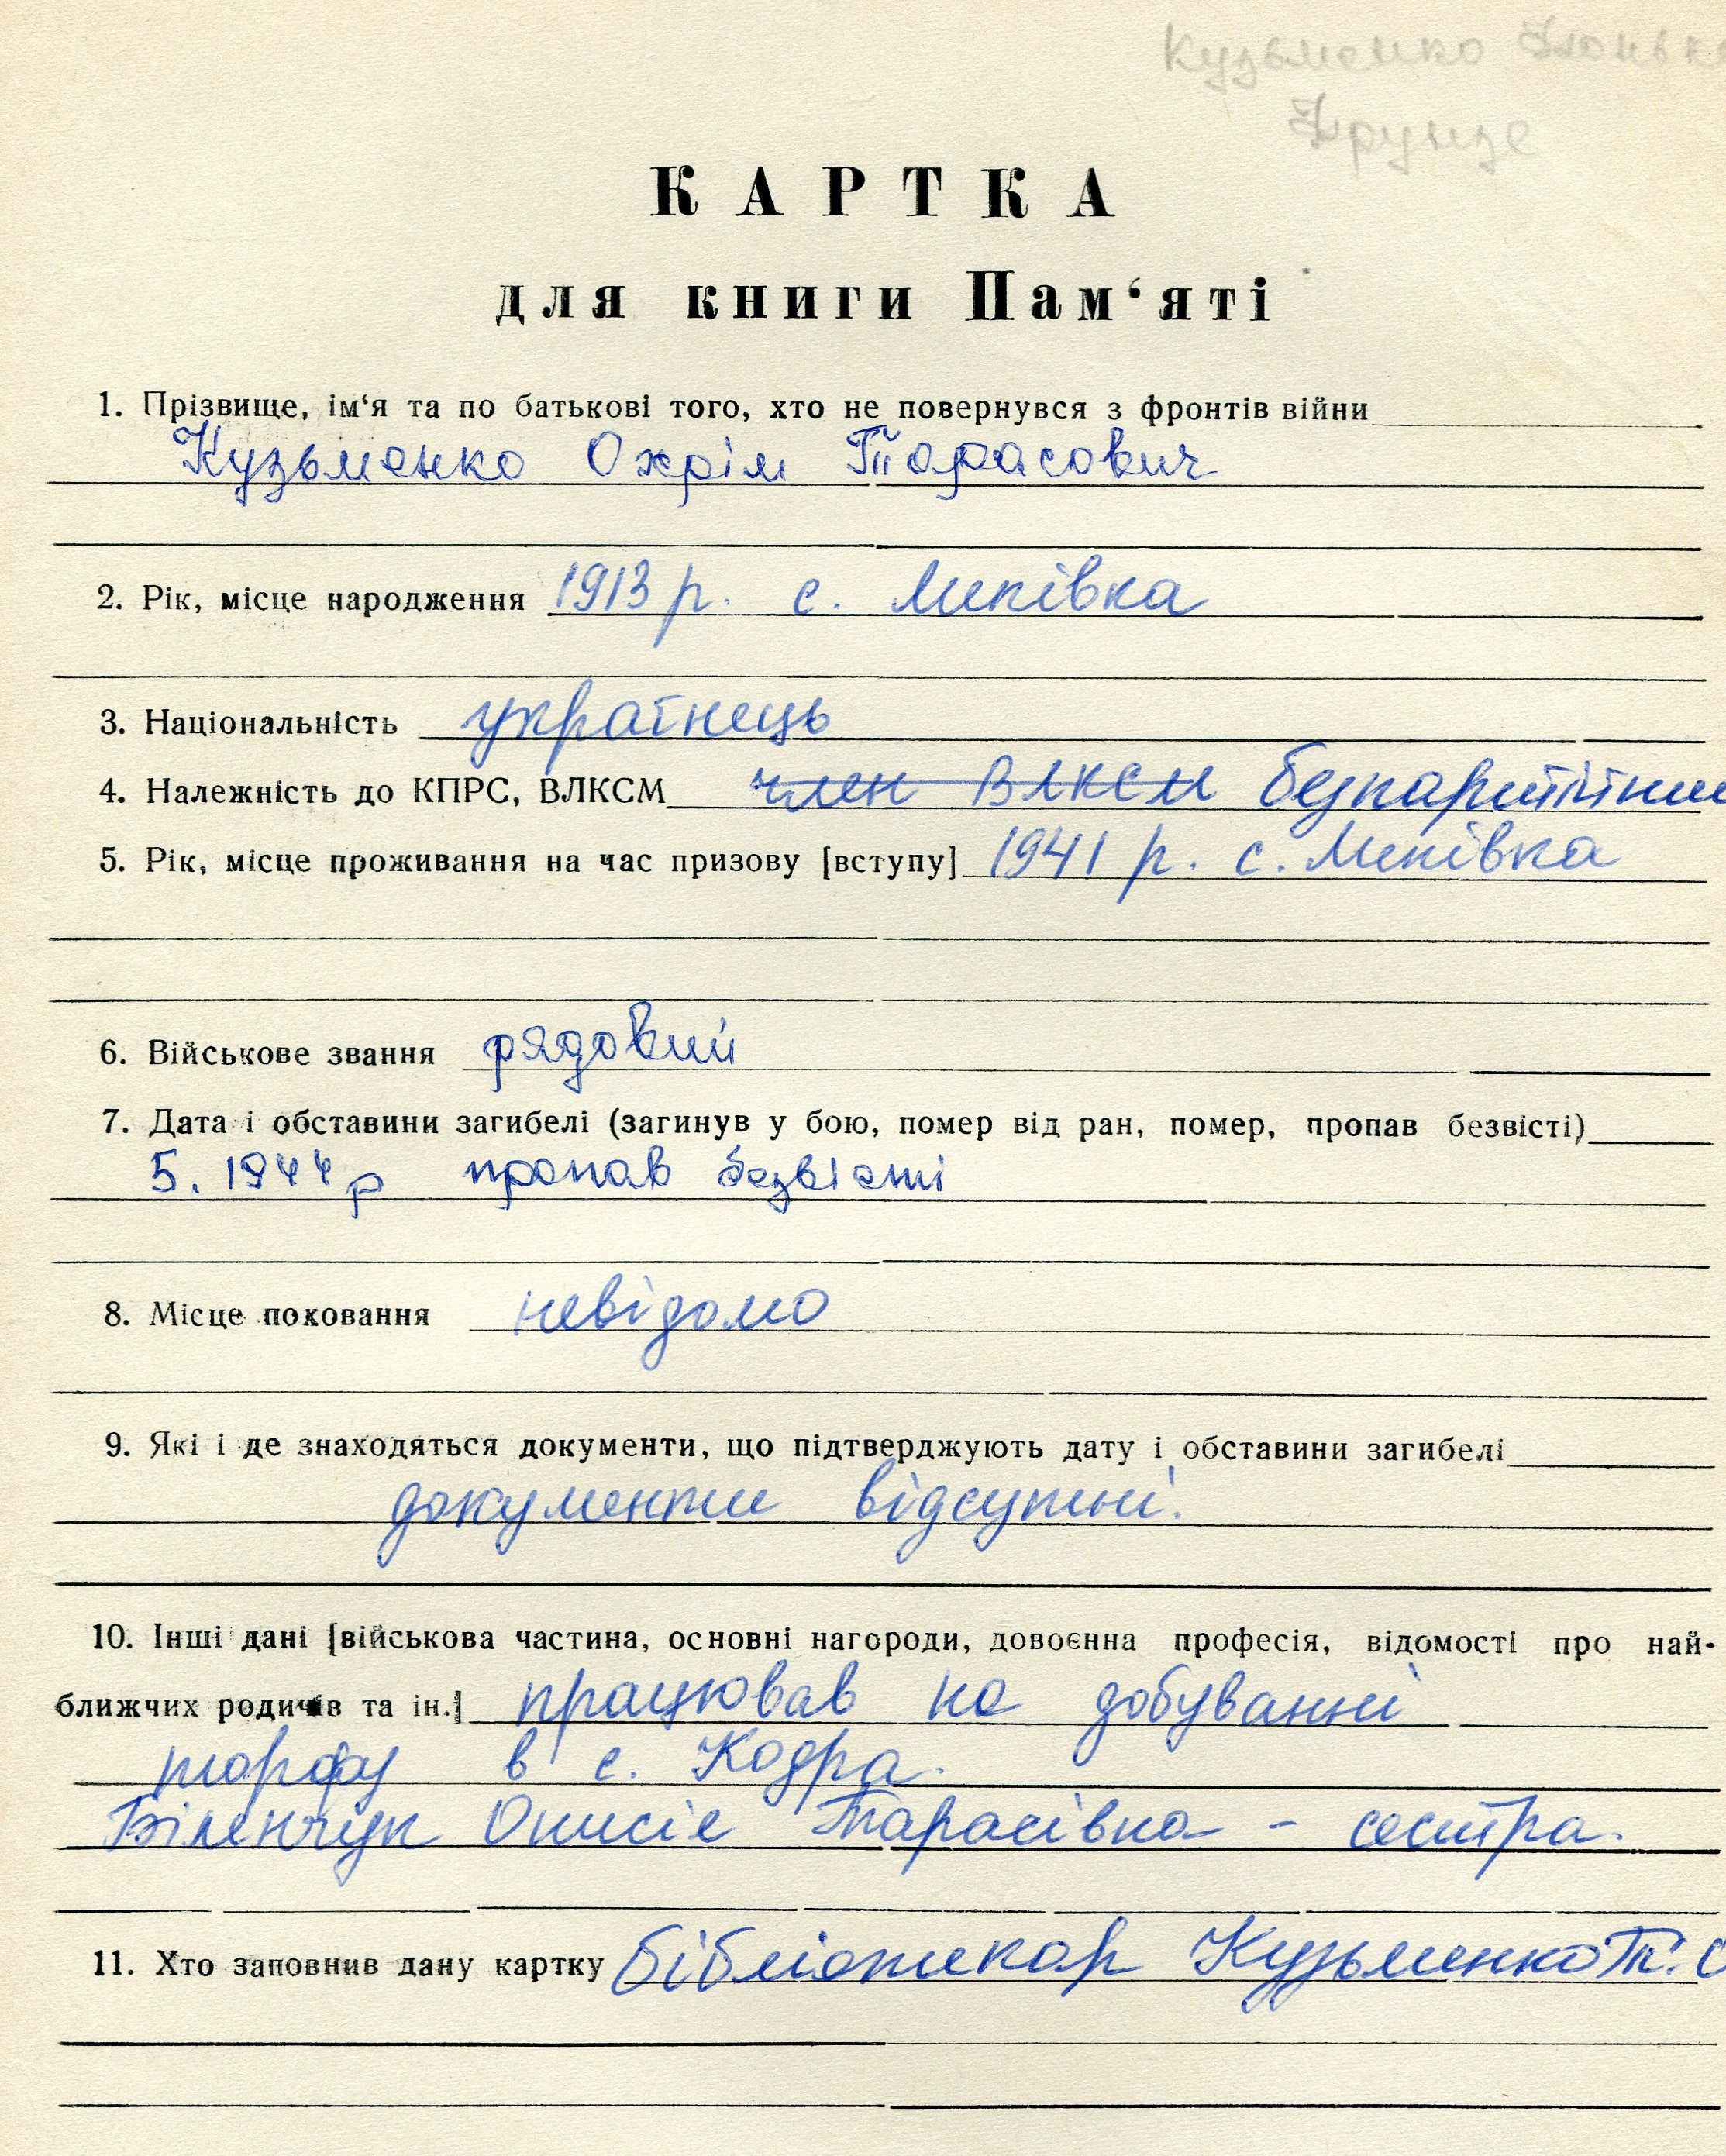 Кузьменко
Фрунзе
КАРТКА
для книги Пам‘яті
1. Прізвище, ім‘я та по батькові того, хто не повернувся з фронтів війни
Кузьменко Охрім Тарасович
2. Рік, місце народження 1913 р. с. Липівка
3. Національність українець
4. Належність до КПРС, ВЛКСМ член ВЛКСМ безпартійний
5. Рік, місце проживання на час призову [вступу] 1941 р. с. Липівка
6. Військове звання рядовий
7. Дата і обставини загибелі (загинув у бою, помер від ран, помер, пропав безвісті)
5. 1944 р пропав безвісті
8. Місце поховання невідомо
9. Які і де знаходяться документи, що підтверджують дату і обставини загибелі
документи відсутні.
10. Інші дані [військова частина, основні нагороди, довоєнна професія, відомості про най-
ближчих родичів та ін.] працював на добуванні
торфу в с. Кодра.
Біленчук Онисіє Тарасівна - сестра.
11. Хто заповнив дану картку бібліотекар Кузьменко Т. О